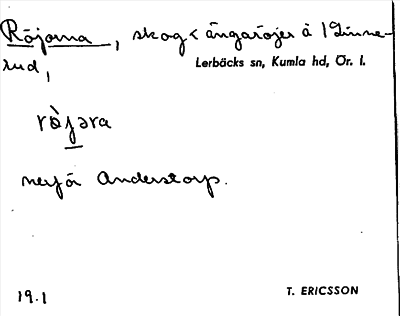 Röjorna, skog < ängaröjer å 1 Linne-
rud,
Lerbäcks sn, Kumla hd, Ör. l.
rò̀jəra
nerför Anderstorp.
19.1
T. ERICSSON